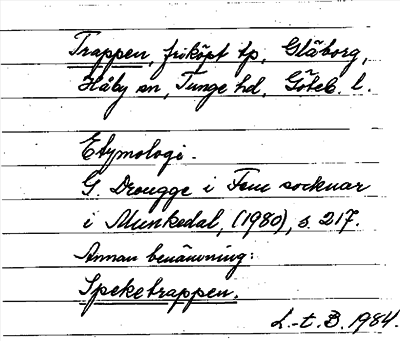 Trappen, friköpt lp, Gläborg,
Håby sn, Tunge hd, Göteb. l.
Etymologi.
G. Drougge i Fem socknar
i Munkedal, (1980), s. 217.
Annan benämning:
Speketrappen.
L.-t. B. 1984.